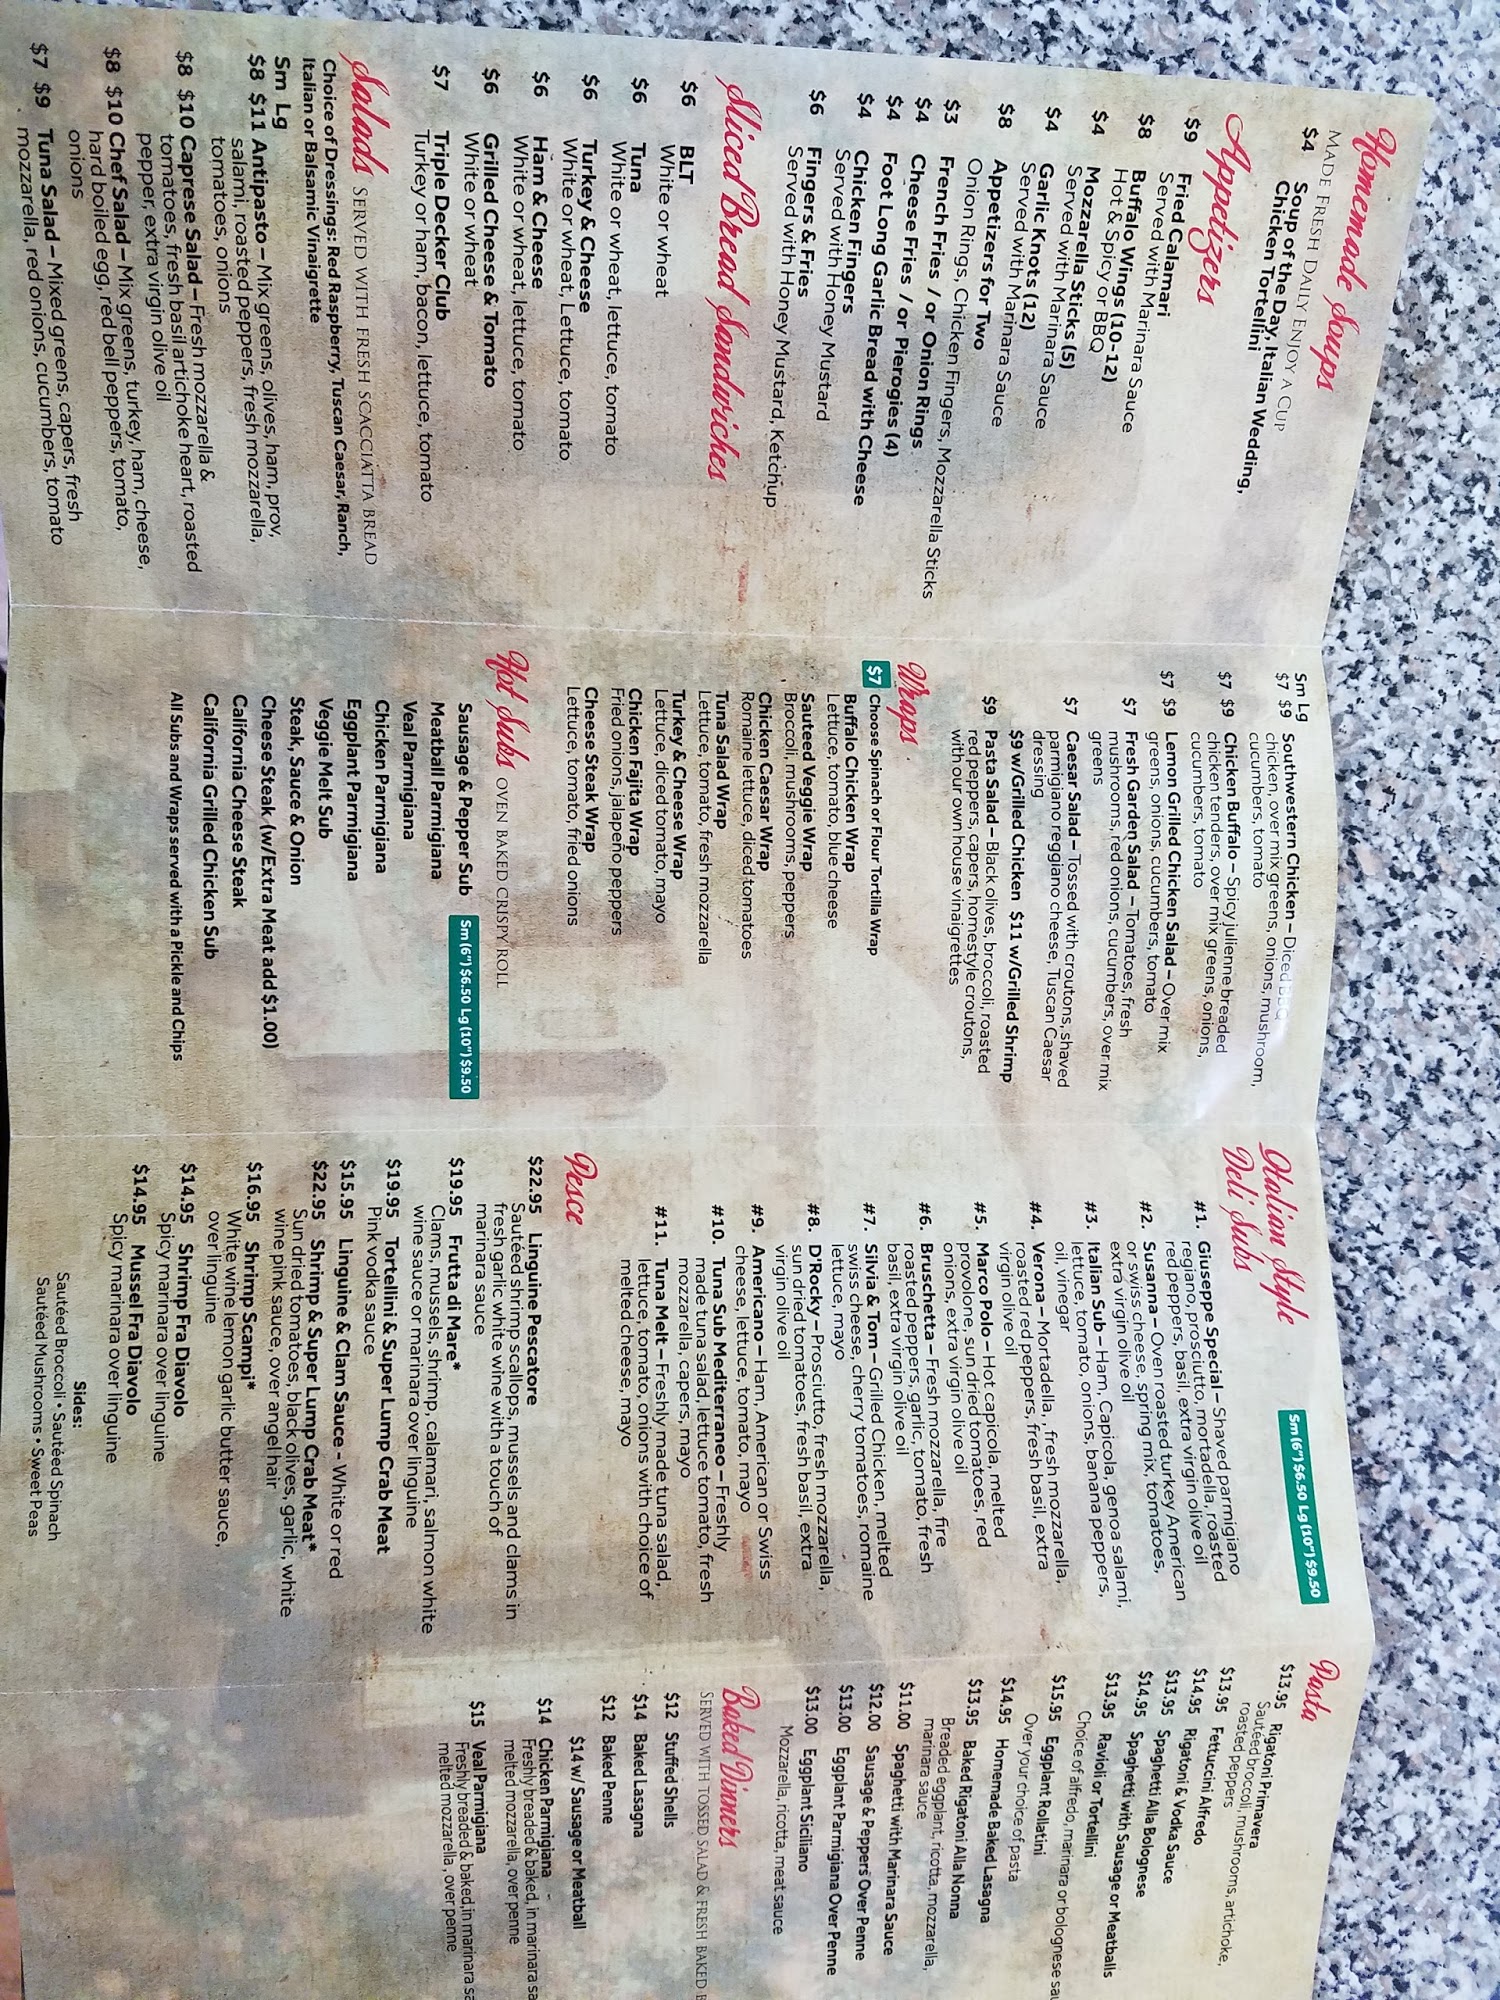 Homemade Soups
Made Fresh Daily Enjoy a Cup
$4 Soup of the Day, Italian Wedding,
Chicken Tortellini
Appetizers
$9 Fried Calamari
Served with Marinara Sauce
$8 Buffalo Wings (10-12)
Hot & Spicy or BBQ
$4 Mozzarella Sticks (5)
Served with Marinara Sauce
$4 Garlic Knots (12)
Served with Marinara Sauce
$8 Appetizers for Two
Onion Rings, Chicken Fingers, Mozzarella Sticks
$3 French Fries
$4 Cheese Fries / or Onion Rings
$4 Foot Long Garlic Bread with Cheese
$4 Chicken Fingers
Served with Honey Mustard
$6 Fingers & Fries
Served with Honey Mustard, Ketchup
Sliced Bread Sandwiches
$6 BLT
White or wheat
$6 Tuna
White or wheat, lettuce, tomato
$6 Turkey & Cheese
White or wheat, Lettuce, tomato
$6 Ham & Cheese
White or wheat, lettuce, tomato
$6 Grilled Cheese & Tomato
White or wheat
$7 Triple Decker Club
Turkey or ham, bacon, lettuce, tomato
Salads Served with fresh scacciatta bread
Choice of Dressings: Red Raspberry, Tuscan Caesar, Ranch,
Italian or Balsamic Vinaigrette
Sm Lg
$8 $11 Antipasto – Mix greens, olives, ham, prov,
salami, roasted peppers, fresh mozzarella,
tomatoes, onions
$8 $10 Caprese Salad – Fresh mozzarella &
tomatoes, fresh basil artichoke heart, roasted
pepper, extra virgin olive oil
$8 $10 Chef Salad – Mix greens, turkey, ham, cheese,
hard boiled egg, red bell peppers, tomato,
onions
$7 $9 Tuna Salad – Mixed greens, capers, fresh
mozzarella, red onions, cucumbers, tomato
Sm Lg
$7 $9 Southwestern Chicken – Diced BBQ
chicken, over mix greens, onions, mushroom,
cucumbers, tomato
$7 $9 Chicken Buffalo – Spicy julienne breaded
chicken tenders, over mix greens, onions,
cucumbers, tomato
$7 $9 Lemon Grilled Chicken Salad – Over mix
greens, onions, cucumbers, tomato
$7 Fresh Garden Salad – Tomatoes, fresh
mushrooms, red onions, cucumbers, over mix
greens
$7 Caesar Salad – Tossed with croutons, shaved
parmigiano reggiano cheese, Tuscan Caesar
dressing
$9 w/Grilled Chicken $11 w/Grilled Shrimp
$9 Pasta Salad – Black olives, broccoli, roasted
red peppers, capers, homestyle croutons,
with our own house vinaigrettes
Wraps
$7 Choose Spinach or Flour Tortilla Wrap
Buffalo Chicken Wrap
Lettuce, tomato, blue cheese
Sauteed Veggie Wrap
Broccoli, mushrooms, peppers
Chicken Caesar Wrap
Romaine lettuce, diced tomatoes
Tuna Salad Wrap
Lettuce, tomato, fresh mozzarella
Turkey & Cheese Wrap
Lettuce, diced tomato, mayo
Chicken Fajita Wrap
Fried onions, jalapeño peppers
Cheese Steak Wrap
Lettuce, tomato, fried onions
Hot Subs Oven baked crispy roll
Sausage & Pepper Sub Sm (6") $6.50 Lg (10") $9.50
Meatball Parmigiana
Veal Parmigiana
Chicken Parmigiana
Eggplant Parmigiana
Veggie Melt Sub
Steak, Sauce & Onion
Cheese Steak (w/Extra Meat add $1.00)
California Cheese Steak
California Grilled Chicken Sub
All Subs and Wraps served with a Pickle and Chips
Italian Style
Deli Subs
Sm (6") $6.50 Lg (10") $9.50
#1. Giuseppe Special – Shaved parmigiano
regiano, prosciutto, mortadella, roasted
red peppers, basil, extra virgin olive oil
#2. Susanna – Oven roasted turkey American
or swiss cheese, spring mix, tomatoes,
extra virgin olive oil
#3. Italian Sub – Ham, Capicola, genoa salami,
lettuce, tomato, onions, banana peppers,
oil, vinegar
#4. Verona – Mortadella, , fresh mozzarella,
roasted red peppers, fresh basil, extra
virgin olive oil
#5. Marco Polo – Hot capicola, melted
provolone, sun dried tomatoes, red
onions, extra virgin olive oil
#6. Bruschetta – Fresh mozzarella, fire
roasted peppers, garlic, tomato, fresh
basil, extra virgin olive oil
#7. Silvia & Tom – Grilled Chicken, melted
swiss cheese, cherry tomatoes, romaine
lettuce, mayo
#8. D'Rocky – Prosciutto, fresh mozzarella,
sun dried tomatoes, fresh basil, extra
virgin olive oil
#9. Americano – Ham, American or Swiss
cheese, lettuce, tomato, mayo
#10. Tuna Sub Mediterraneo – Freshly
made tuna salad, lettuce tomato, fresh
mozzarella, capers, mayo
#11. Tuna Melt – Freshly made tuna salad,
lettuce, tomato, onions with choice of
melted cheese, mayo
Pesce
$22.95 Linguine Pescatore
Sautéed shrimp scallops, mussels and clams in
fresh garlic white wine with a touch of
marinara sauce
$19.95 Frutta di Mare*
Clams, mussels, shrimp, calamari, salmon white
wine sauce or marinara over linguine
$19.95 Tortellini & Super Lump Crab Meat
Pink vodka sauce
$15.95 Linguine & Clam Sauce - White or red
$22.95 Shrimp & Super Lump Crab Meat*
Sun dried tomatoes, black olives, garlic, white
wine pink sauce, over angel hair
$16.95 Shrimp Scampi*
White wine lemon garlic butter sauce,
over linguine
$14.95 Shrimp Fra Diavolo
Spicy marinara over linguine
$14.95 Mussel Fra Diavolo
Spicy marinara over linguine
Sides:
Sautéed Broccoli • Sautéed Spinach
Sautéed Mushrooms • Sweet Peas
Pasta
$13.95 Rigatoni Primavera
Sautéed broccoli, mushrooms, artichoke,
roasted peppers
$13.95 Fettuccini Alfredo
$14.95 Rigatoni & Vodka Sauce
$13.95 Spaghetti Alla Bolognese
$14.95 Spaghetti with Sausage or Meatballs
$13.95 Ravioli or Tortellini
Choice of alfredo, marinara or bolognese
$15.95 Eggplant Rollatini
Over your choice of pasta
$14.95 Homemade Baked Lasagna
$13.95 Baked Rigatoni Alla Nonna
Breaded eggplant, ricotta, mozzarella,
marinara sauce
$11.00 Spaghetti with Marinara Sauce
$12.00 Sausage & Peppers Over Penne
$13.00 Eggplant Parmigiana Over Penne
$13.00 Eggplant Siciliano
Mozzarella, ricotta, meat sauce
Baked Dinners
Served with tossed salad & fresh baked
$12 Stuffed Shells
$14 Baked Lasagna
$12 Baked Penne
$14 w/ Sausage or Meatball
$14 Chicken Parmigiana
Freshly breaded & baked, in marinara
melted mozzarella, over penne
$15 Veal Parmigiana
Freshly breaded & baked, in marinara
melted mozzarella, over penne